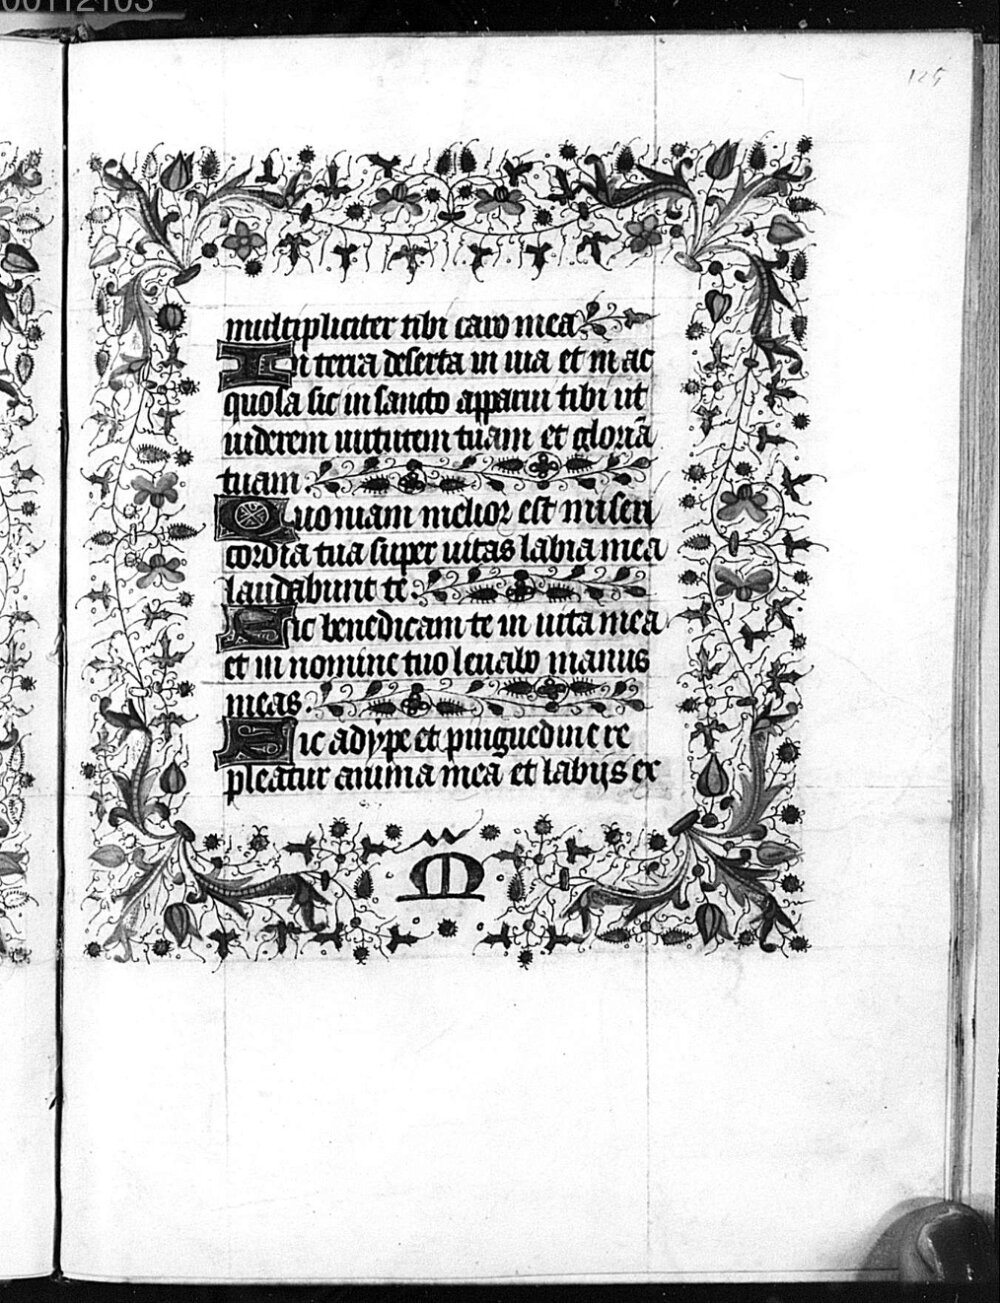 00112103
125
multipliciter tibi caro mea
In terra deserta in uia et in ac
quosa sic in sancto apparui tibi ut
uiderem uirtutem tuam et gloriā
tuam:
Quoniam melior est miseri
cordia tua super uitas labia mea
laudabunt te:
Sic benedicam te in uita mea
et in nomine tuo leuabo manus
meas:
Sic adype et pinguedine re
pleatur anima mea et labijs ex
M